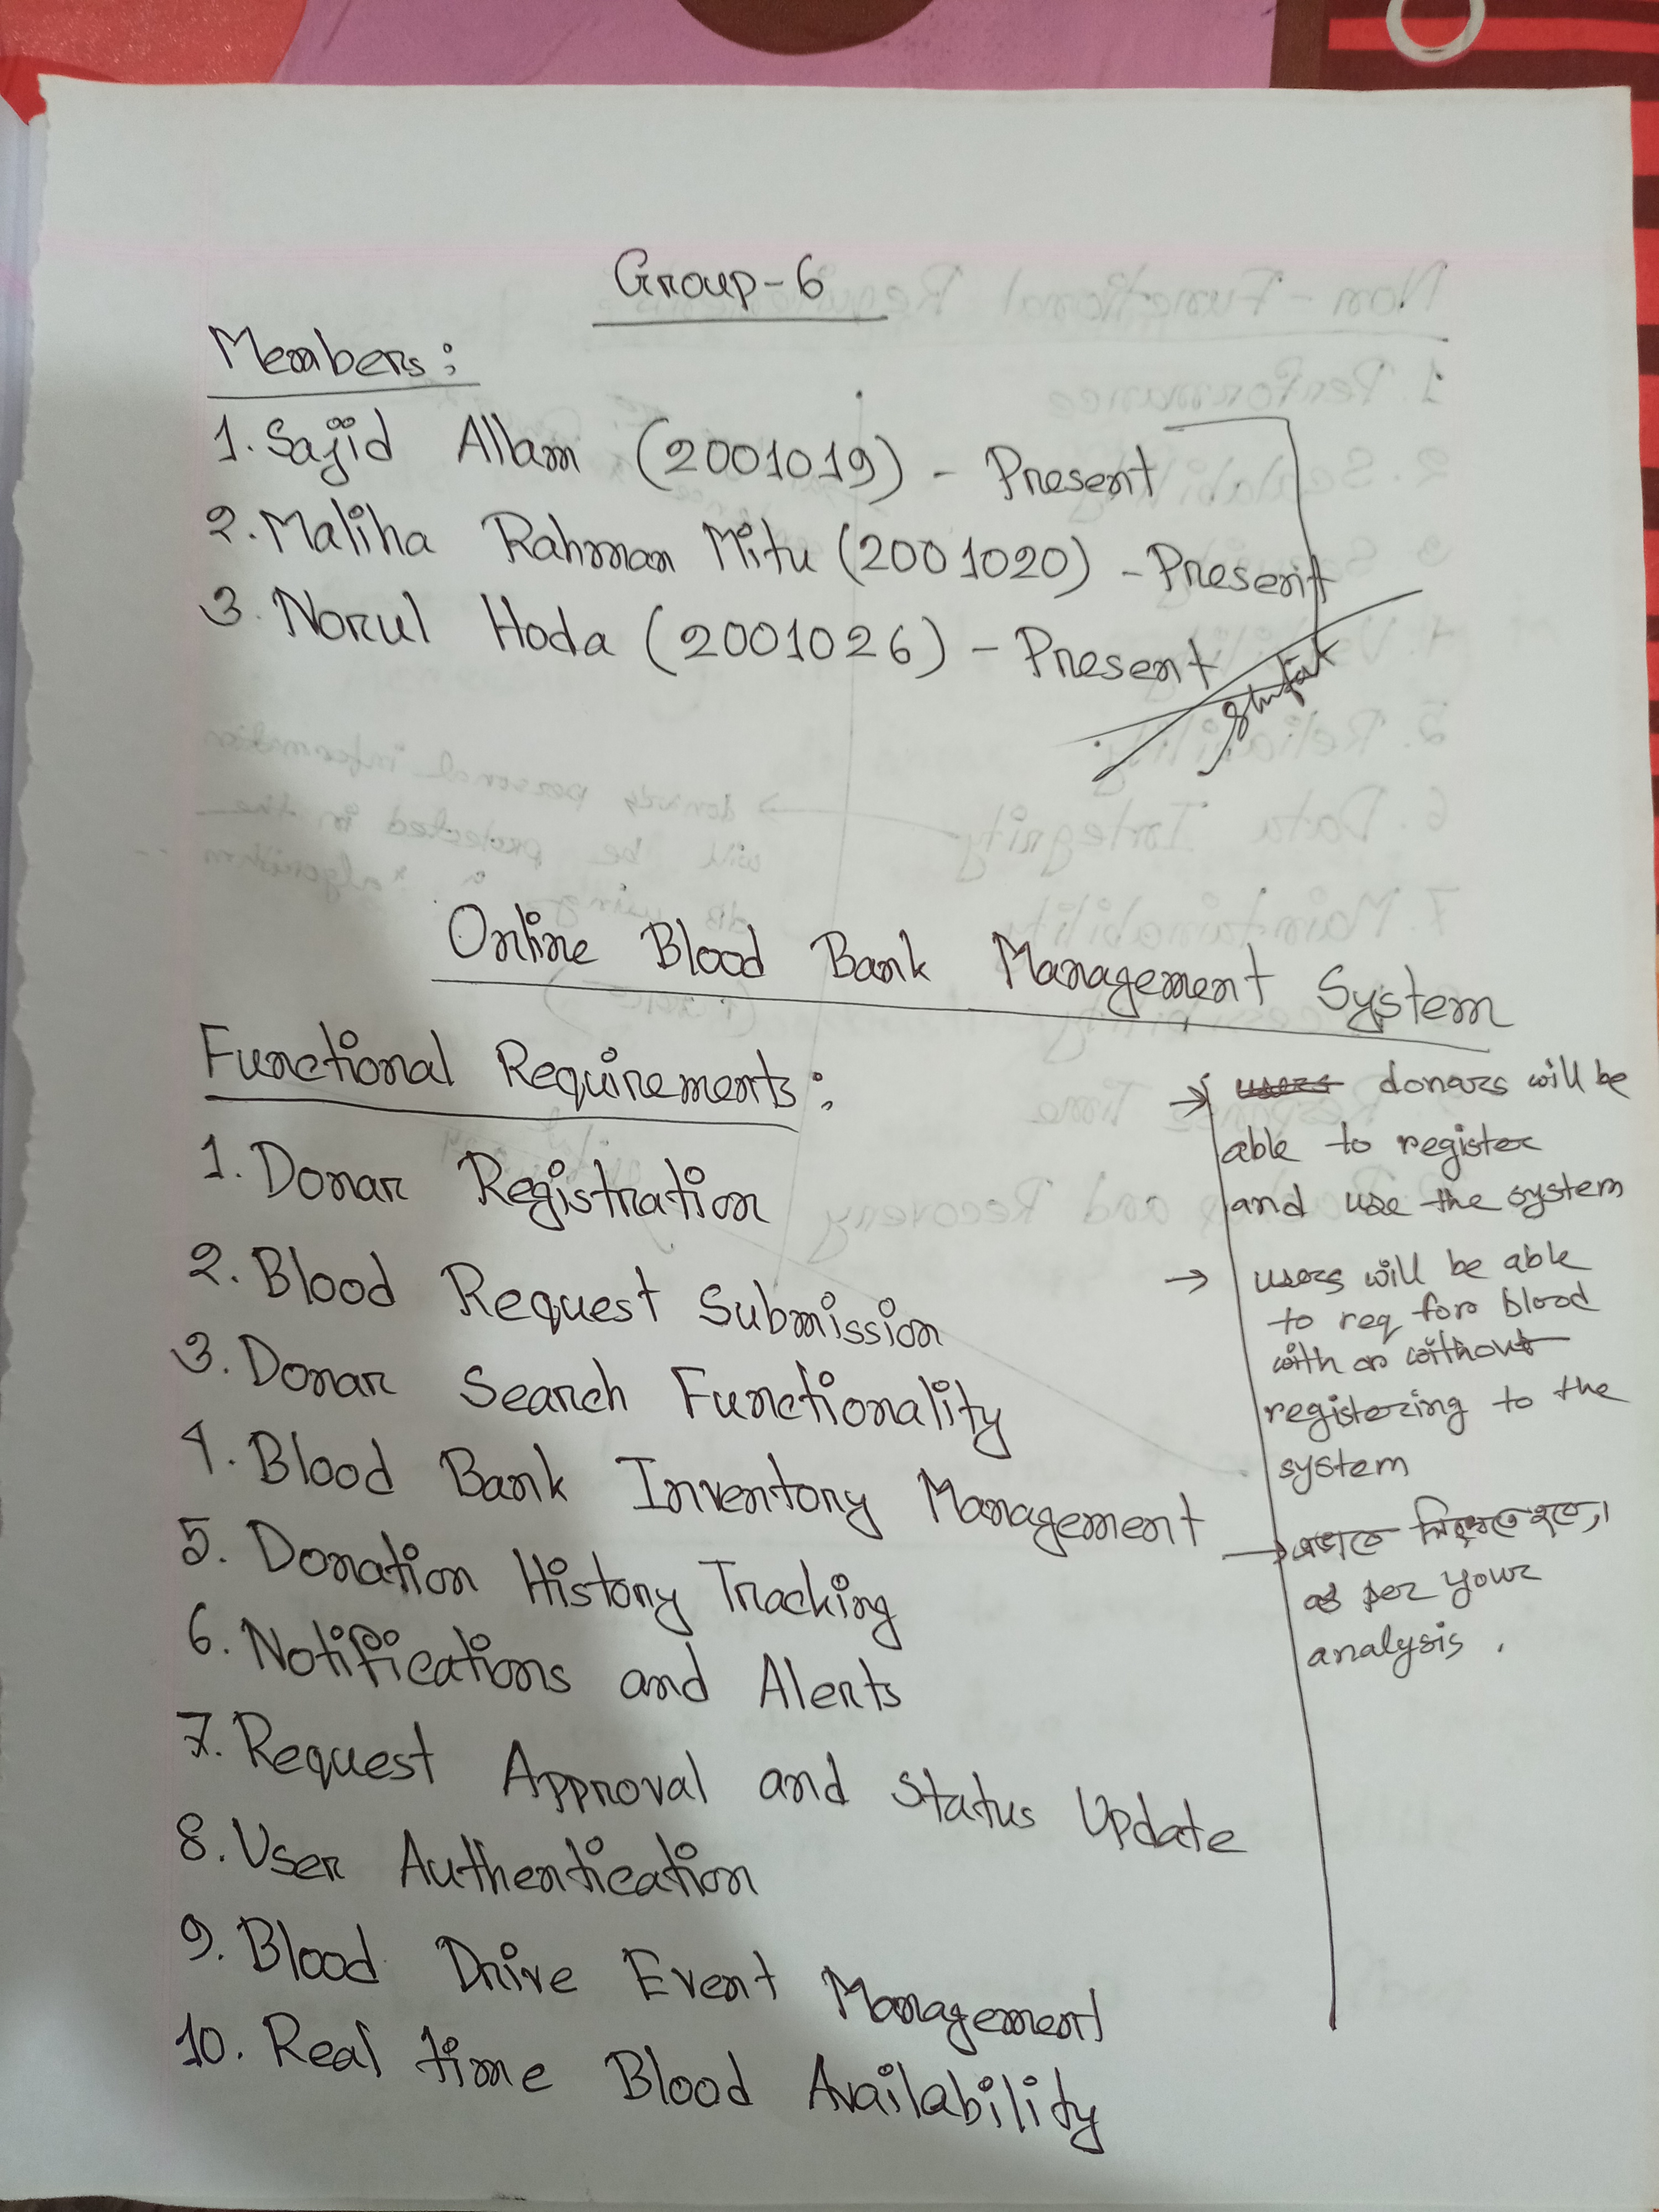 Group-6
Members:
1. Sajid Allam (2001019) - Present
2. Maliha Rahman Mitu (2001020) - Present
3. Norul Hoda (2001026) - Present
Online Blood Bank Management System
Functional Requirements:
1. Donar Registration
2. Blood Request Submission
3. Donar Search Functionality
4. Blood Bank Inventory Management
5. Donation History Tracking
6. Notifications and Alerts
7. Request Approval and Status Update
8. User Authentication
9. Blood Drive Event Management
10. Real time Blood Availability
→ users donars will be
able to register
and use the system
→ users will be able
to req for blood
with or without
registering to the
system
→ এভাবে লিখতে হবে,
as per your
analysis.